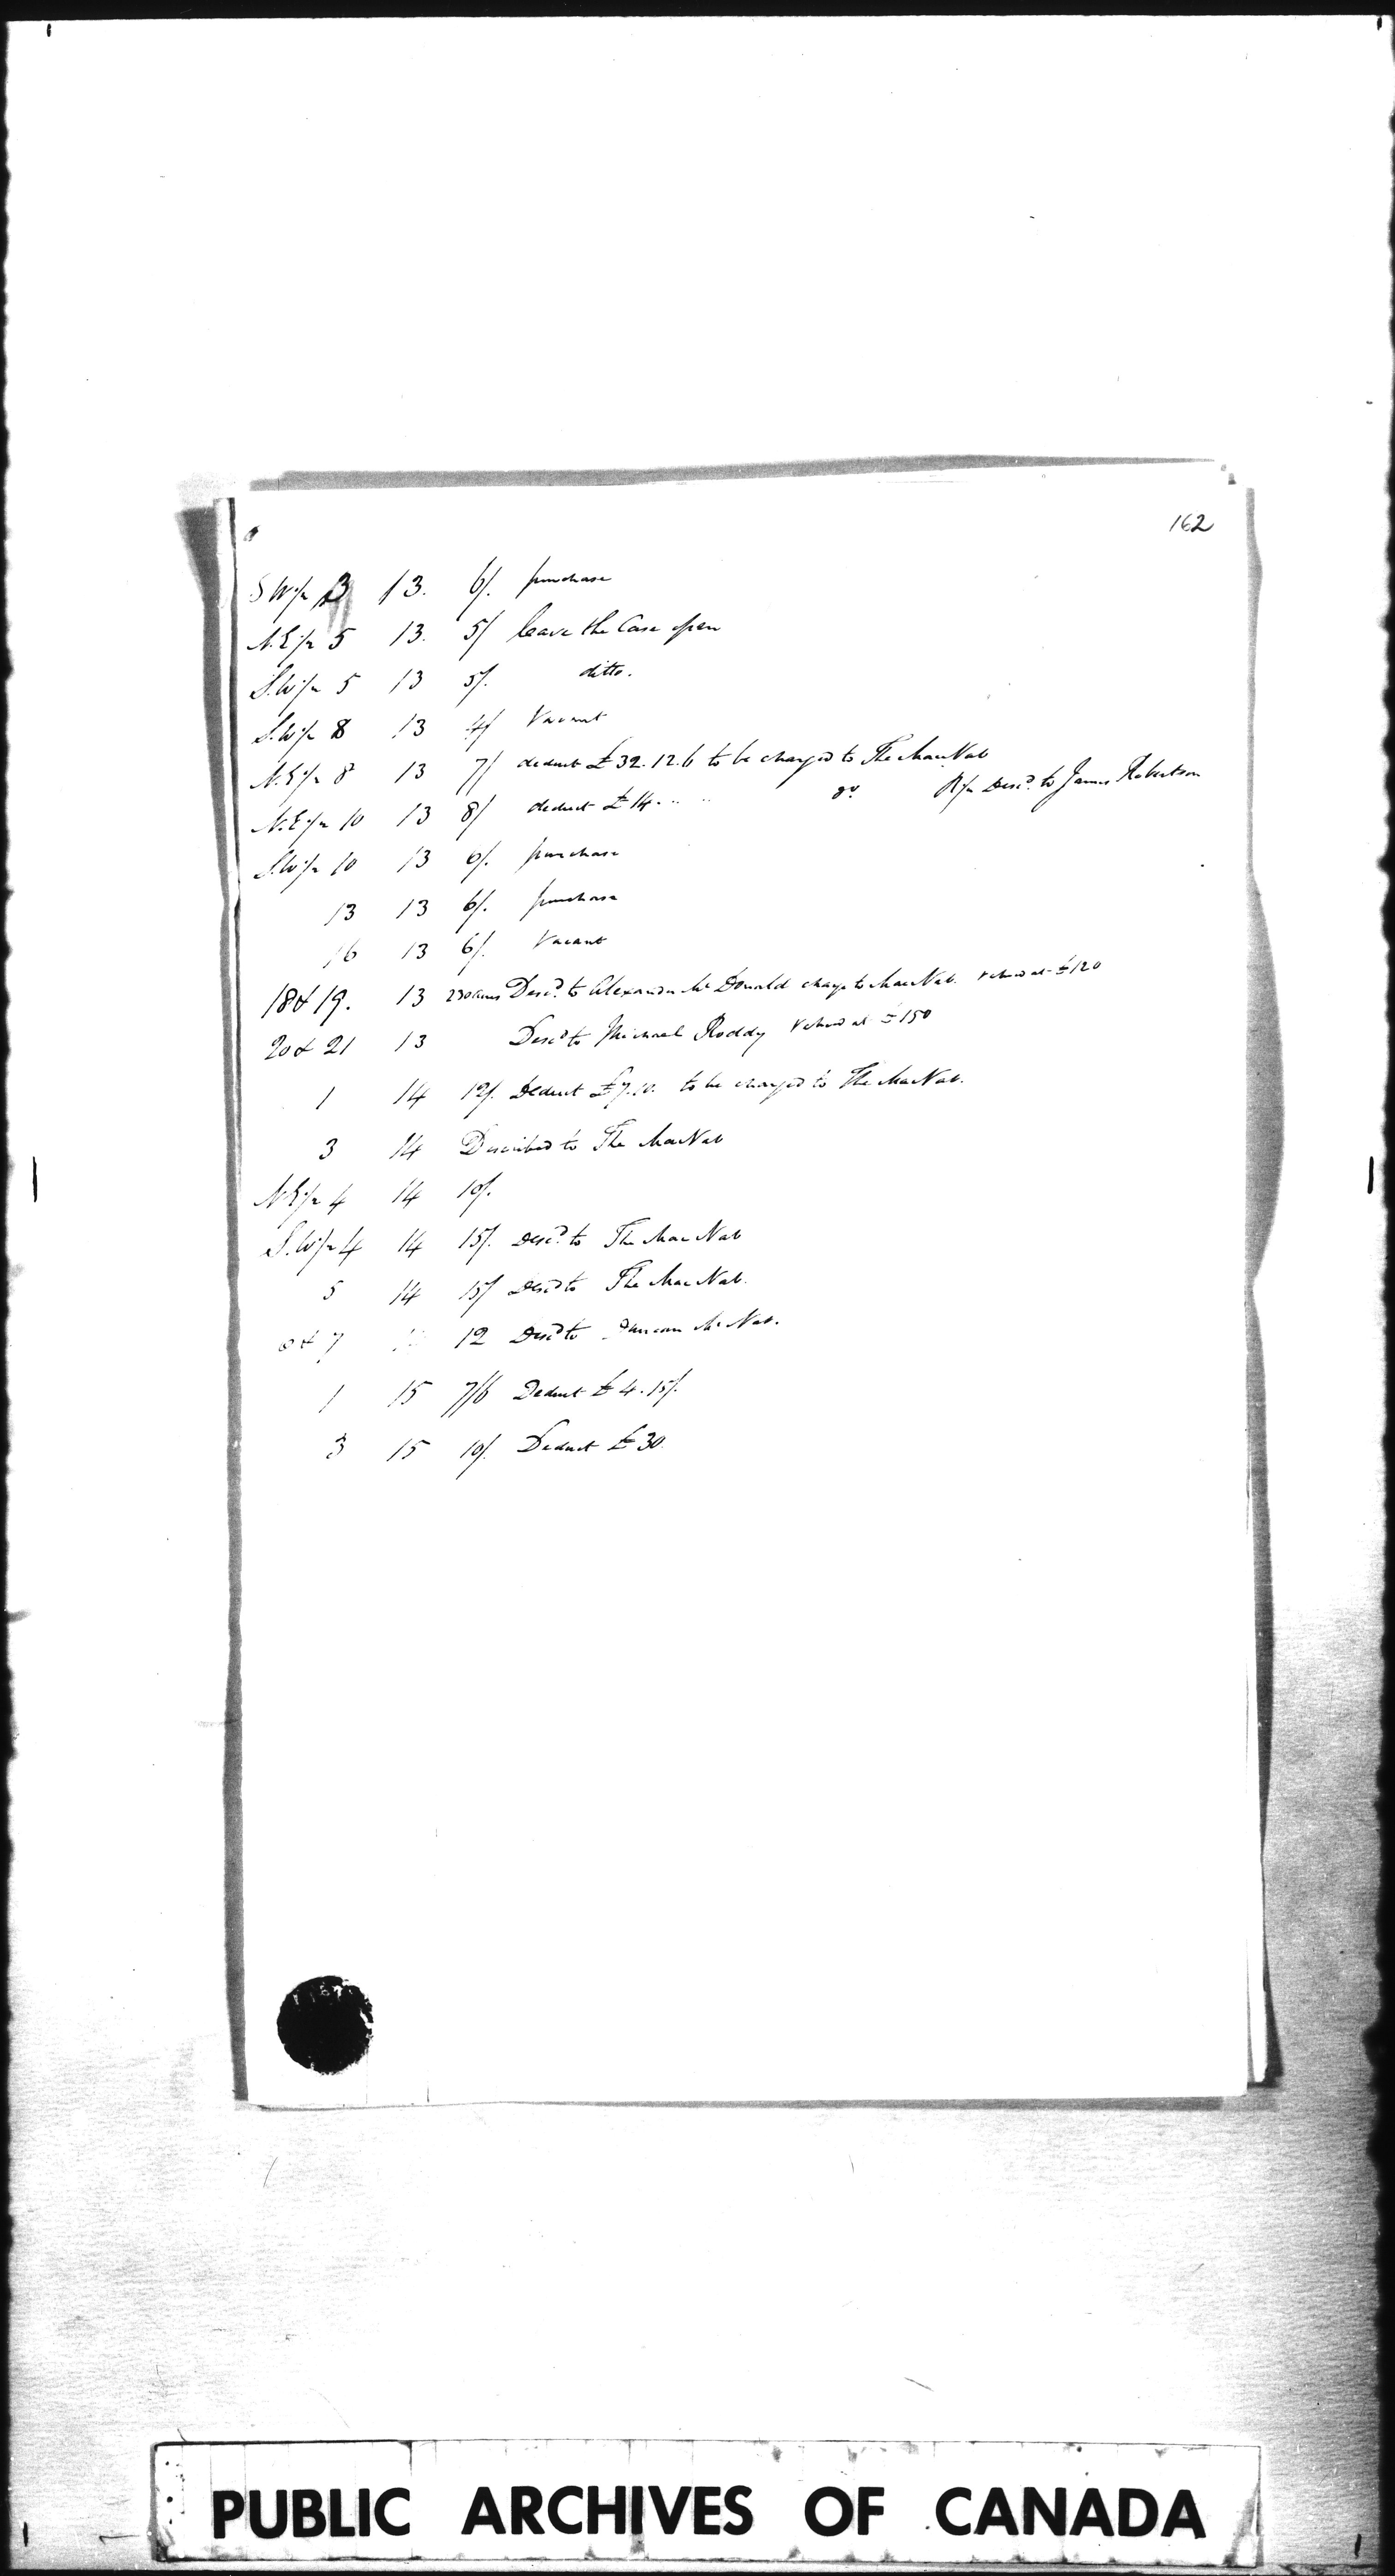 162
S W ½ 3 13. 6/. purchase
N.E ½ 5 13. 5/ leave the Case open
S.W ½ 5 13 5/. ditto.
S.W ½ 8 13 4/ Vacant
N.E ½ 8 13 7/ deduct £32.12.6 to be charged to The MacNab
N.E ½ 10 13 8/ deduct £14. .. .. do. R ½ Desd. to James Robertson
S.W ½ 10 13 6/. purchase
13 13 6/. purchase
16 13 6/. Vacant
18 & 19. 13 230 acres Desd. to Alexander McDonald charge to MacNab. valued at £120
20 & 21 13 Desd to Michael Roddy valued at £150
1 14 12/. Deduct £7.10. to be charged to The MacNab.
3 14 Described to The MacNab
N.E ½ 4 14 10/.
S.W ½ 4 14 15/. Desd. to The MacNab
5 14 15/ Desd to The MacNab.
& 7 12 Desd to Duncan McNab.
1 15 7/6 Deduct £4.15/.
3 15 10/. Deduct £30.
PUBLIC ARCHIVES OF CANADA